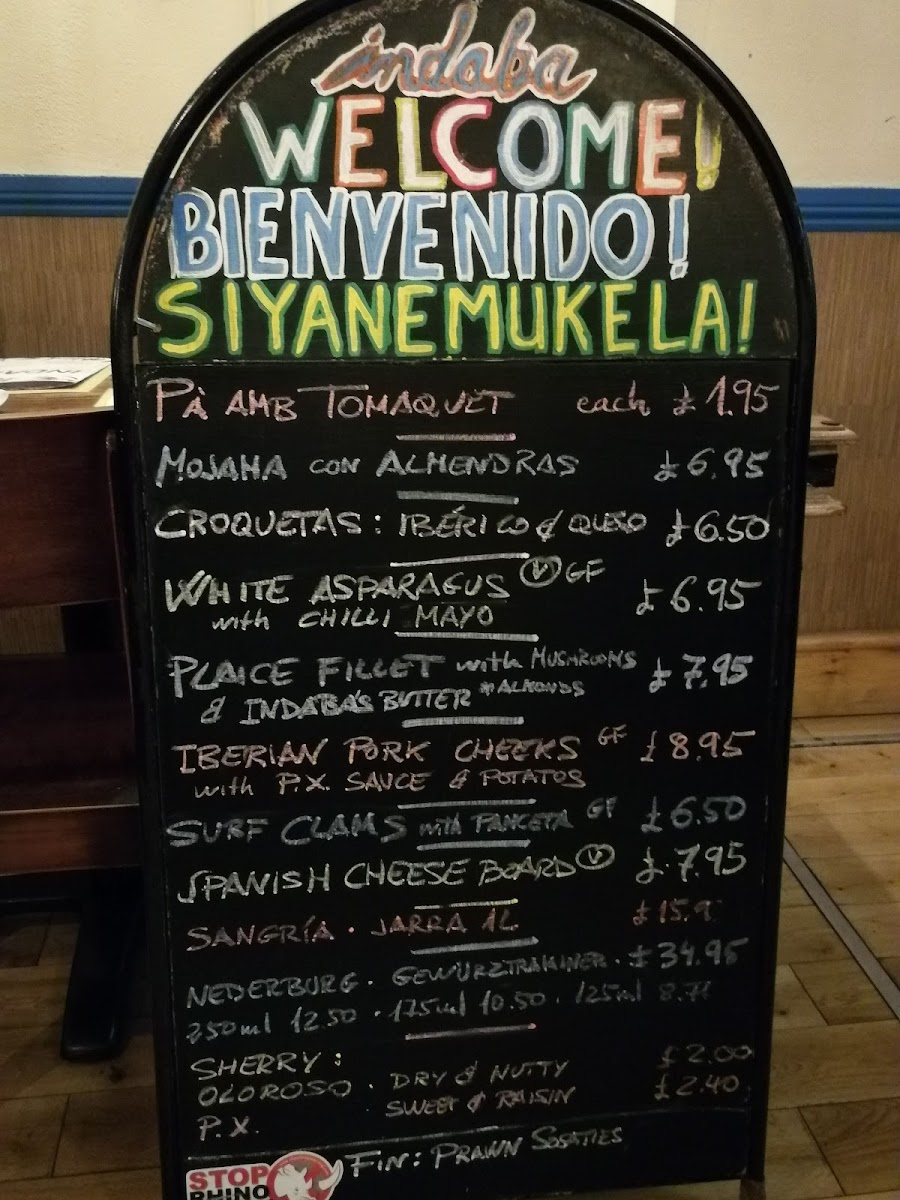 indaba
WELCOME!
BIENVENIDO!
SIYANEMUKELA!
PÀ AMB TOMAQUET each £1.95
MOJAMA CON ALMENDRAS £6.95
CROQUETAS: IBÉRICO & QUESO £6.50
WHITE ASPARAGUS Ⓥ GF £6.95
with CHILLI MAYO
PLAICE FILLET with MUSHROOMS £7.95
& INDABA'S BUTTER ALMONDS
IBERIAN PORK CHEEKS GF £8.95
with P.X. SAUCE & POTATOS
SURF CLAMS with PANCETA GF £6.50
SPANISH CHEESE BOARD Ⓥ £7.95
SANGRÍA · JARRA 1L £15.9
NEDERBURG · GEWÜRZTRAMINER · £34.95
250ml 12.50 · 175ml 10.50 · 125ml
SHERRY: £2.00
OLOROSO · DRY & NUTTY £2.40
P.X. · SWEET & RAISIN
FIN: PRAWN SOSATIES
STOP
RHINO